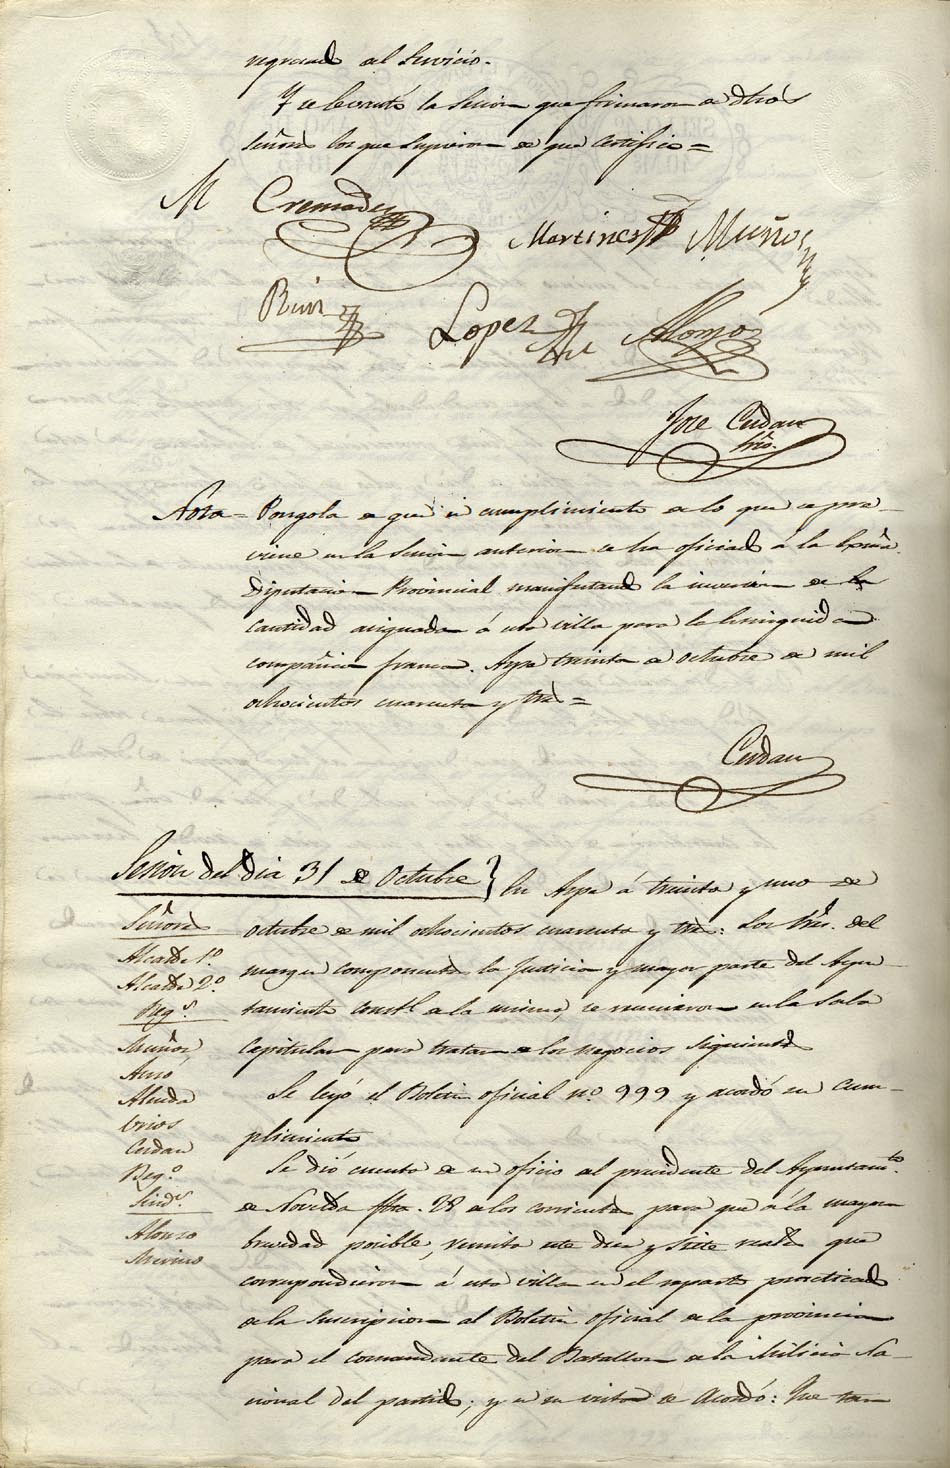 regresado al Servicio.
Y se levantó la Sesion que firmaron de dhos
señores los que supieron de que certifico =
M Cremades
Martinez Muñoz
Ruiz Lopez Alonso
Jose Cerdan
Srio.
Nota = Pongola de que en cumplimiento de lo que se pre-
viene en la Sesion anterior se ha oficiado á la Exma.
Diputacion Provincial manifestando la inversion de la
cantidad asignada á esta villa para la estinguida
compañia franca. Aspe treinta de octubre de mil
ochocientos cuarenta y tres =
Cerdan
Sesion del dia 31 de Octubre } En Aspe á treinta y uno de
Señores
octubre de mil ochocientos cuarenta y tres: Los Sres. del
Alcalde 1.º
margen componentes la Justicia y mayor parte del Ayun
Alcalde 2.º
tamiento constl. de la misma, se reunieron en la Sala
Reg.s
Capitular para tratar de los negocios siguientes
Muñoz
Se leyó el Boletin oficial n.º 999 y acordó su cum-
Almida
plimiento
Cerdan
Se dió cuenta de un oficio del presidente del Ayuntam.to
Reg.º
de Novelda fha. 28 de los corrientes para que á la mayor
Sind.s
brevedad posible, remita este diez y siete reales que
Alonso
correspondieron á esta villa en el reparto practicado
de la suscripcion al Boletin oficial de la provincia
para el comandante del Batallon de la Milicia Na-
cional del partido; y en su vista se Acordó: Que tan